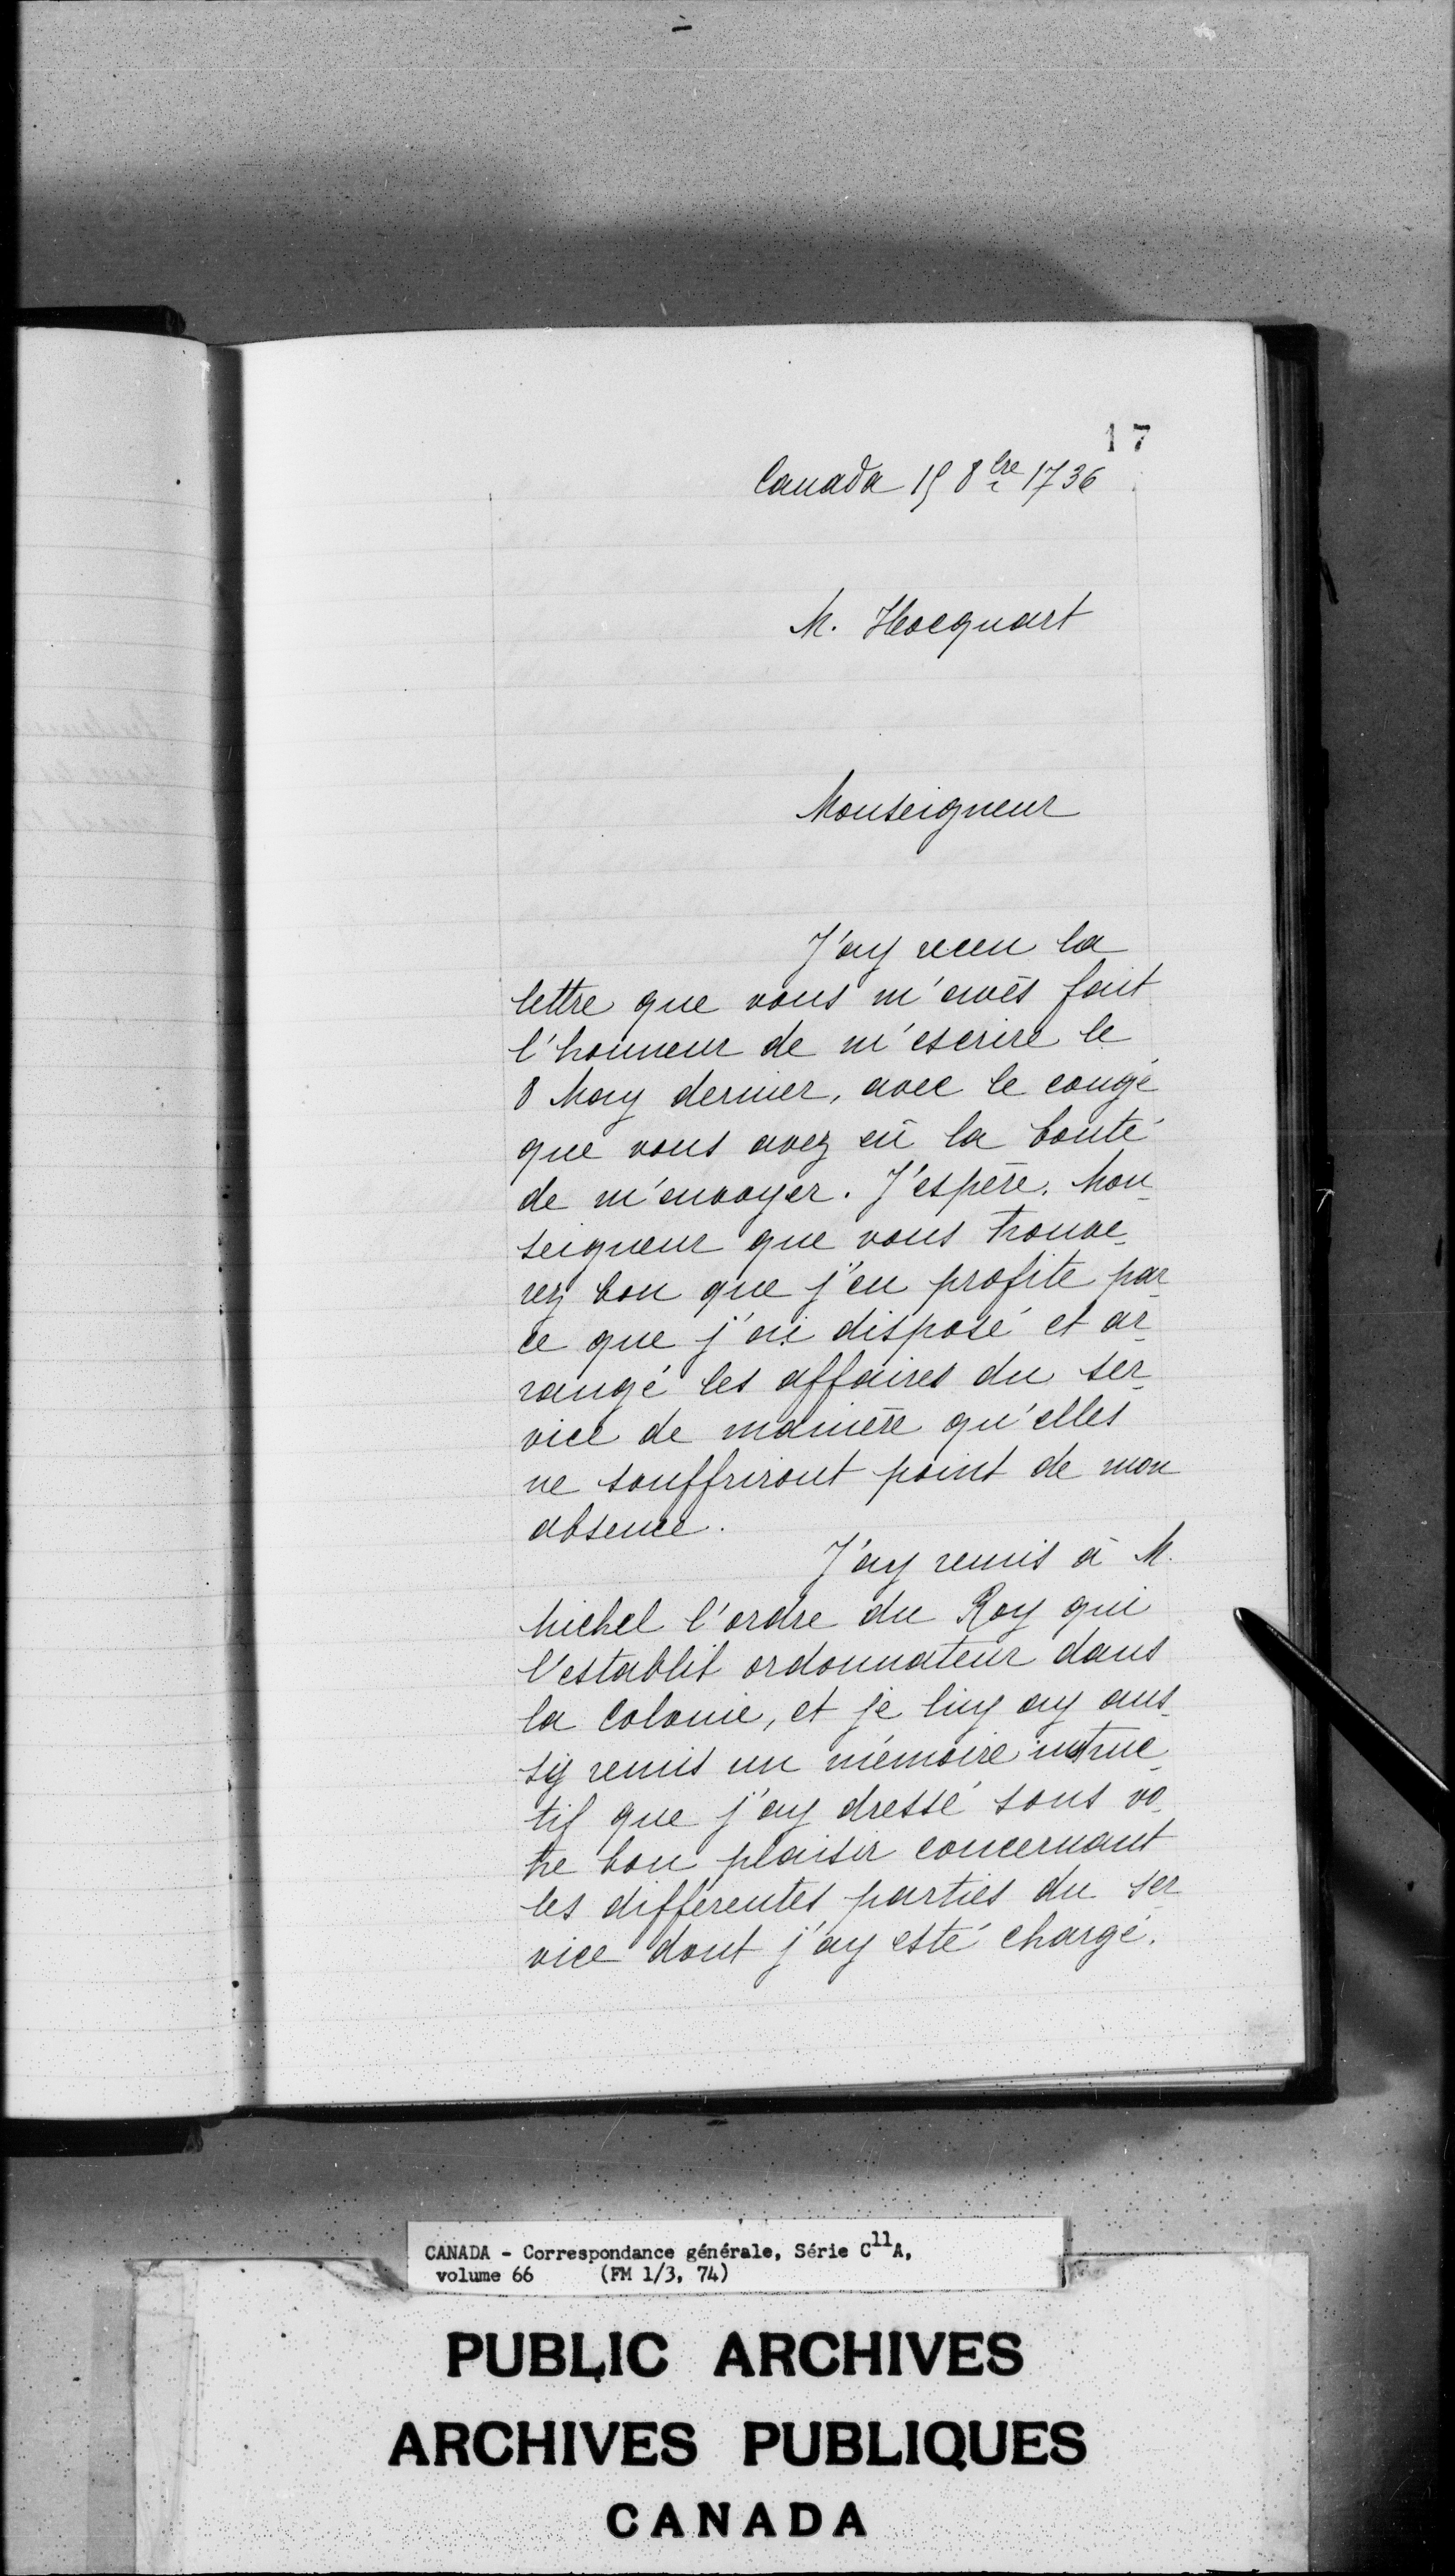 17
Canada 15 8bre 1736
M. Hocquart
Monseigneur
J'ay receu la
lettre que vous m'avés fait
l'honneur de m'escrire le
8 May dernier, avec le congé
que vous avez eü la bonté
de m'envoyer. J'espère, Mon-
seigneur que vous trouve-
rez bon que j'en profite par-
ce que j'ai disposé et ar-
rangé les affaires du ser-
vice de manière qu'elles
ne souffriront point de mon
absence.
J'ay remis à M.
Michel l'ordre du Roy qui
l'establit ordonnateur dans
la Colonie, et je luy ay aus-
sy remis un mémoire instruc-
tif que j'ay dressé sous vo-
tre bon plaisir concernant
les différentes parties du ser-
vice dont j'ay esté chargé.
CANADA - Correspondance générale, Série C11A,
volume 66 (FM 1/3, 74)
PUBLIC ARCHIVES
ARCHIVES PUBLIQUES
CANADA